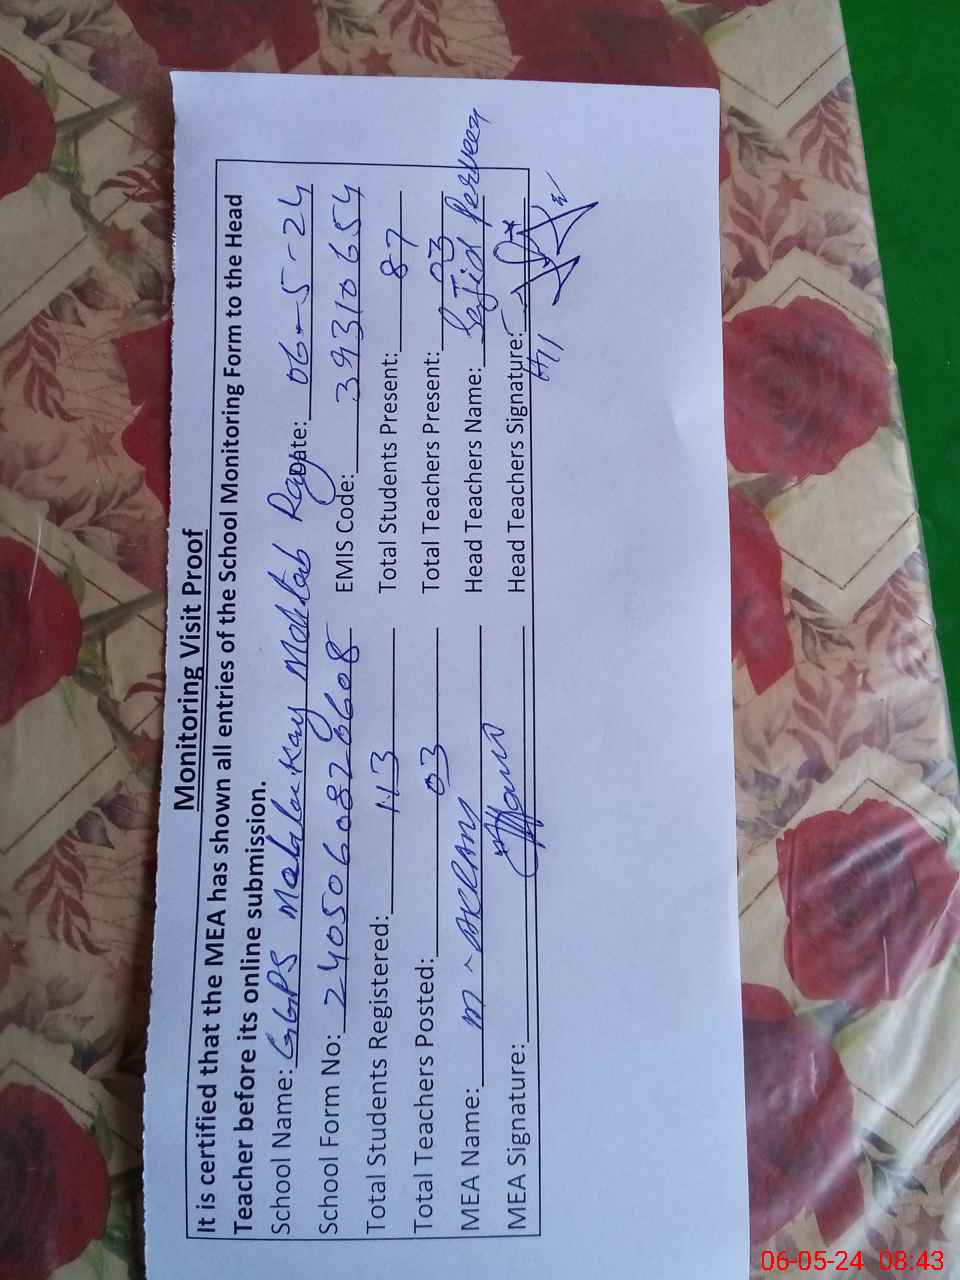 Monitoring Visit Proof
It is certified that the MEA has shown all entries of the School Monitoring Form to the Head
Teacher before its online submission.
School Name: GGPS Date: 06-5-24
School Form No: EMIS Code: 39310654
Total Students Registered: 113 Total Students Present: 87
Total Teachers Posted: 03 Total Teachers Present: 03
MEA Name: Head Teachers Name: Perveen
MEA Signature: Head Teachers Signature:
06-05-24 08:43